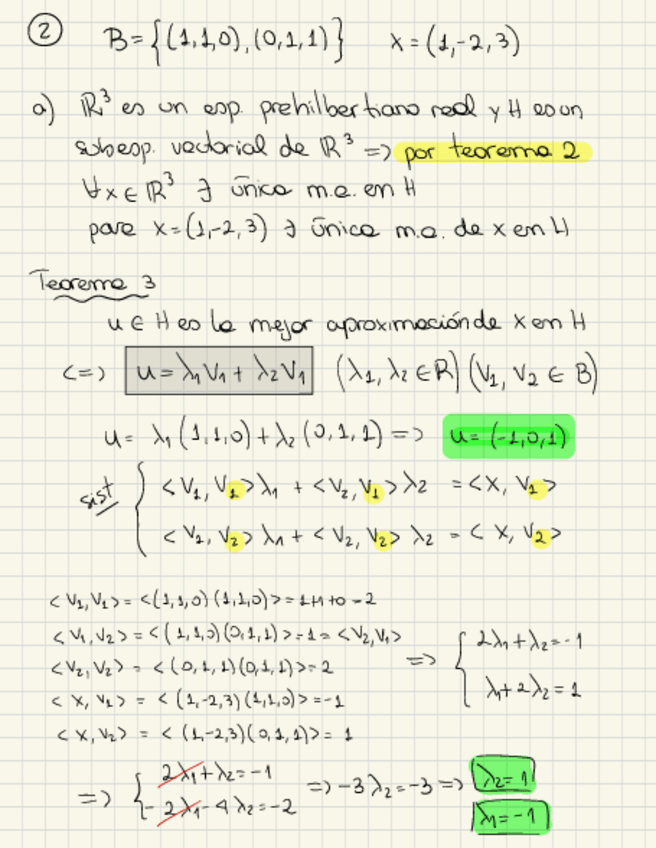 ② B={(1,1,0),(0,1,1)} x=(1,-2,3)
a) ℝ³ es un esp. prehilbertiano real y H es un
subesp. vectorial de ℝ³ => por teorema 2
∀x∈ℝ³ ∃ única m.a. en H
para x=(1,-2,3) ∃ única m.a. de x en H
Teorema 3
u ∈ H es la mejor aproximación de x en H
<=> u=λ₁V₁+λ₂V₁ (λ₁,λ₂∈R)(V₁,V₂∈B)
u= λ₁(1,1,0)+λ₂(0,1,1) => u=(-1,0,1)
sist { <V₁,V₁>λ₁ + <V₂,V₁>λ₂ = <x,V₁>
<V₁,V₂>λ₁ + <V₂,V₂>λ₂ = <x,V₂>
<V₁,V₁> = <(1,1,0)(1,1,0)> = 1+1+0=2
<V₁,V₂> = <(1,1,0)(0,1,1)> = 1 = <V₂,V₁>
<V₂,V₂> = <(0,1,1)(0,1,1)> = 2
<x,V₁> = <(1,-2,3)(1,1,0)> = -1
<x,V₂> = <(1,-2,3)(0,1,1)> = 1
=> { 2λ₁+λ₂=-1
λ₁+2λ₂=1
=> { 2λ₁+λ₂=-1 => -3λ₂=-3 => λ₂=1
-2λ₁-4λ₂=-2 λ₁=-1